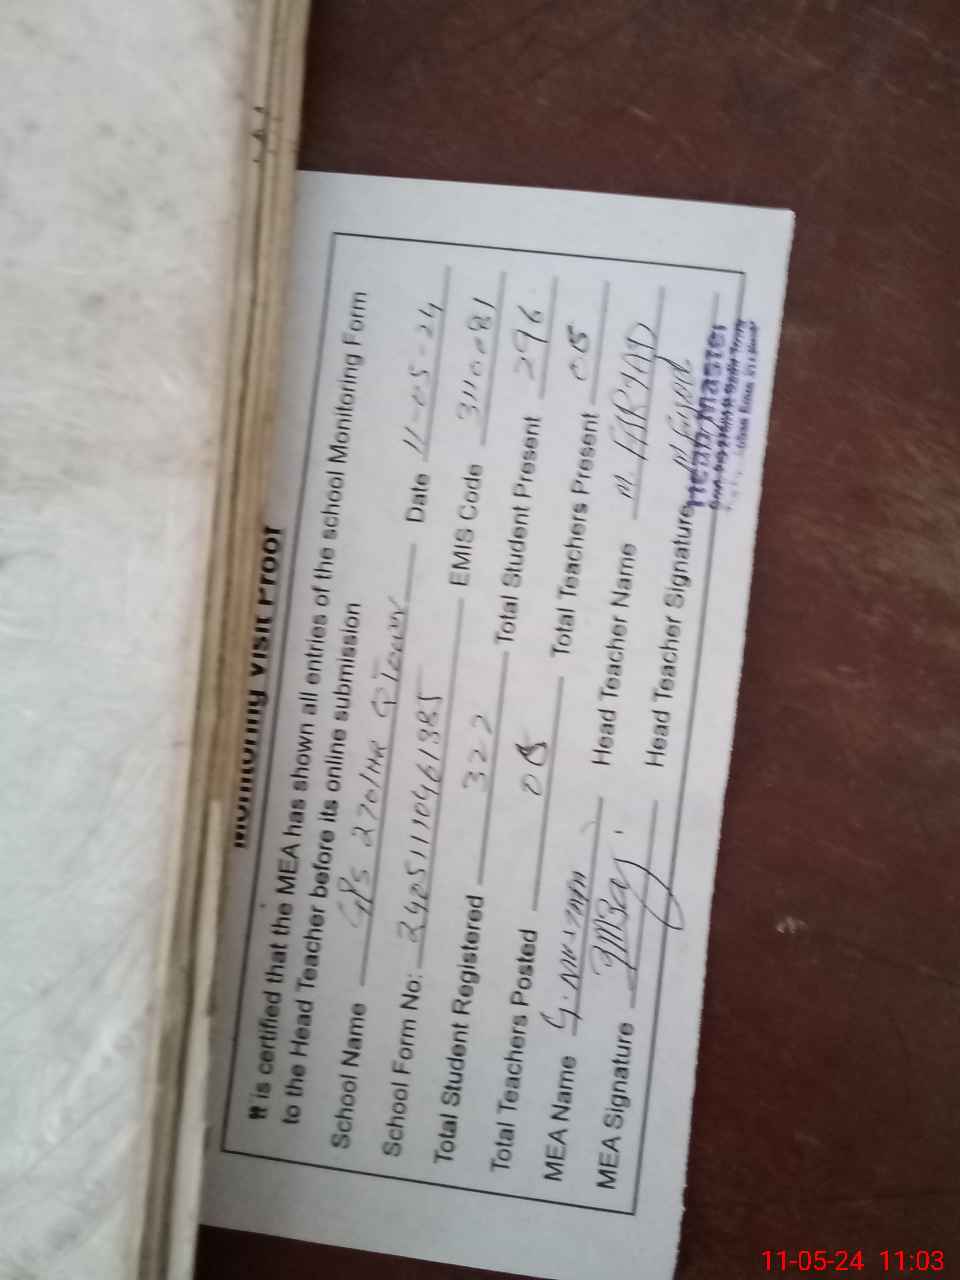 Monitoring Visit Proof
It is certified that the MEA has shown all entries of the school Monitoring Form
to the Head Teacher before its online submission
School Name GPS 270/HR Date 11-05-24
School Form No: 34051110461385 EMIS Code
Total Student Registered 322 Total Student Present 296
Total Teachers Posted 08 Total Teachers Present 08
MEA Name Head Teacher Name M.
MEA Signature Head Teacher Signature
Head Master
11-05-24 11:03